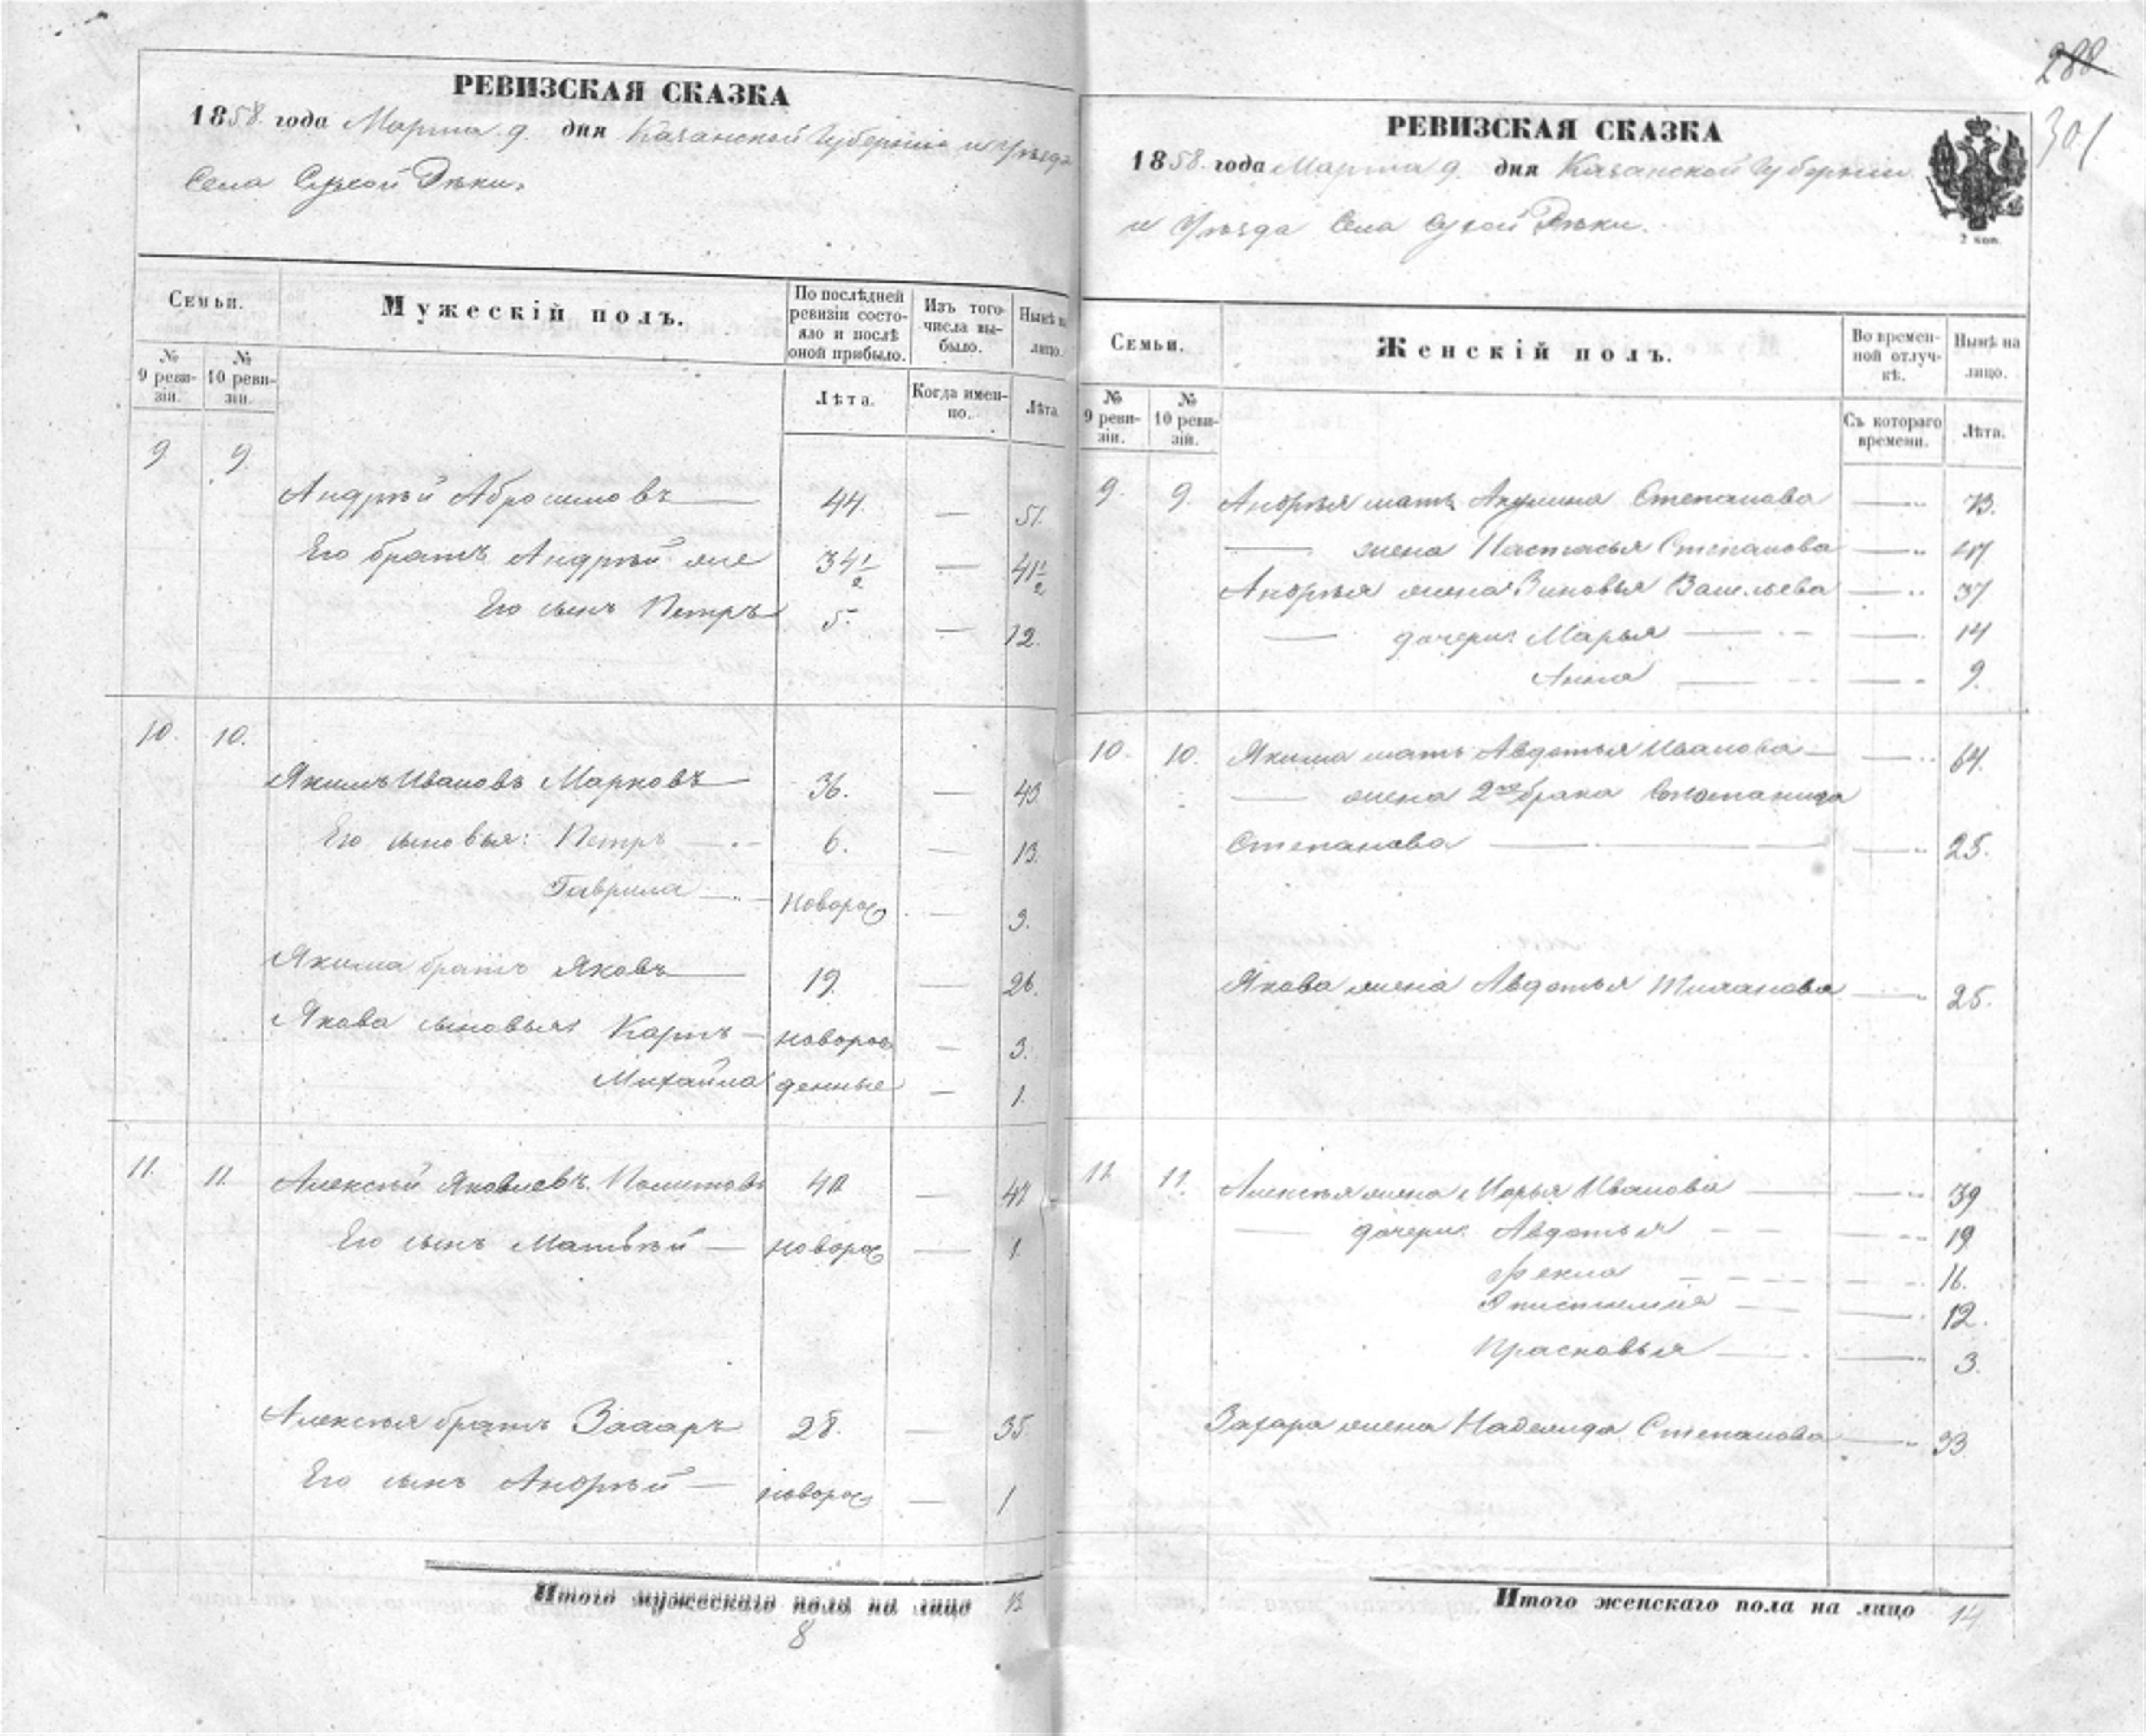 РЕВИЗСКАЯ СКАЗКА
1858. года Марта 9. дня Казанской Губерніи и Уѣзда
Села Сухой Рѣки.
Семьи.
Мужескій полъ.
По послѣдней ревизіи состояло и послѣ оной прибыло.
Изъ того числа выбыло.
Нынѣ на лицо.
№ 9 ревизіи.
№ 10 ревизіи.
Лѣта.
Когда именно.
Лѣта.
9. 9
Андрѣй Абросимовъ 44. — 51.
Его братъ Андрѣй же 34 1/2 — 41 1/2
Его сынъ Петръ 5. — 12.
10. 10.
Якимъ Ивановъ Марковъ 36. — 43.
Его сыновья: Петръ 6. — 13.
Гаврила новорож — 3.
Якима братъ Яковъ 19. — 26.
Якова сыновья: Карпъ новорож — 3.
Михайла денные — 1.
11. 11. Алексѣй Яковлевъ 40 — 47
Его сынъ Матвѣй — новорож — 1.
Алексѣя братъ Захаръ 28. — 35
Его сынъ Андрѣй — новорож — 1
Итого мужескаго пола на лицо 13
8
288
301
РЕВИЗСКАЯ СКАЗКА
1858. года Марта 9. дня Казанской Губерніи
и Уѣзда Села Сухой Рѣки.
2 коп.
Семьи.
Женскій полъ.
Во временной отлучкѣ.
Нынѣ на лицо.
№ 9 ревизіи.
№ 10 ревизіи.
Съ котораго времени.
Лѣта.
9. 9. Андрѣя мать Акулина Степанова — 73.
— жена Настасья Степанова — 47
Андрѣя жена Зиновья Васильева — 37
— дочери: Марья — 14
Анна — 9.
10. 10. Якима мать Авдотья Иванова — 64.
— жена 2го брака Соломанида
Степанова — 25.
Якова жена Авдотья — 25.
11. 11. Алексѣя жена Марья Иванова — 39
— дочери: Авдотья — 19
Фекла — 16.
Епистимія — 12.
Прасковья — 3.
Захара жена Надежда Степанова — 33.
Итого женскаго пола на лицо 14